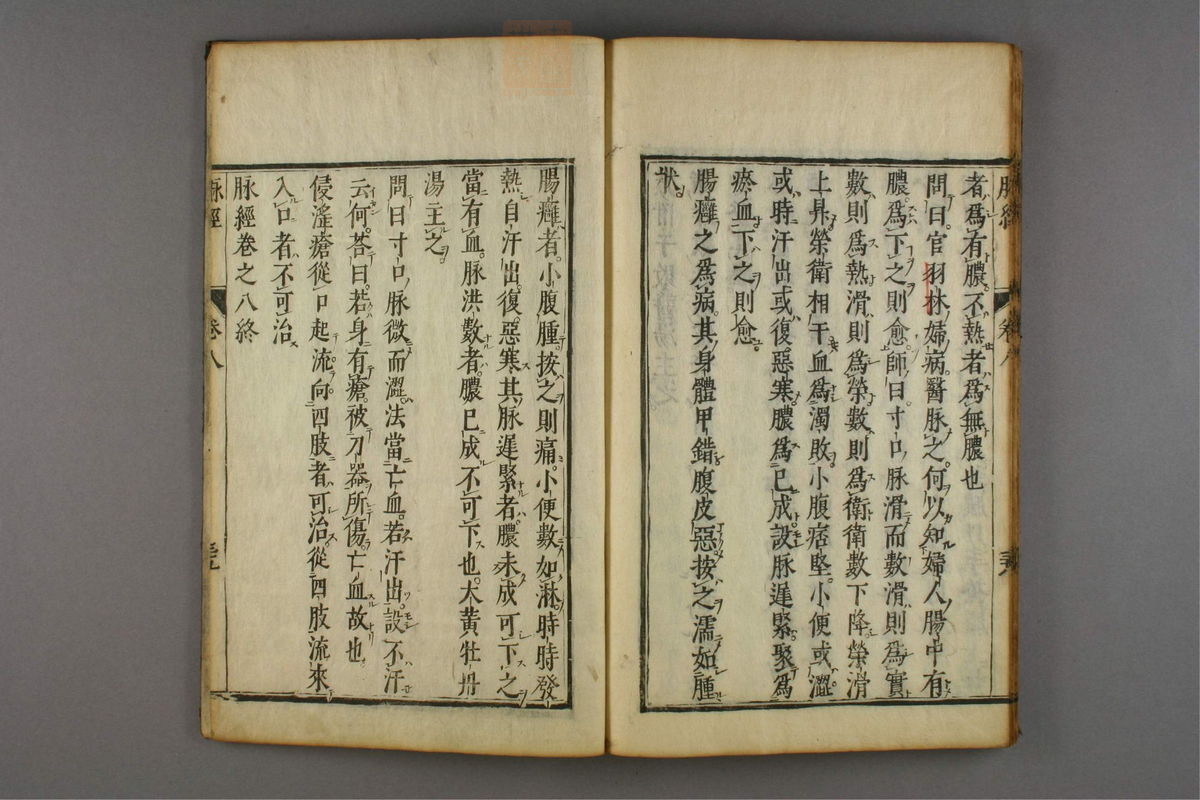 者爲有膿不熱者爲無膿也
問曰官羽林婦病醫脉之何以知婦人腸中有
膿爲下之則愈師曰寸口脉滑而數滑則爲實
數則爲熱滑則爲榮數則爲衛衛數下降榮滑
上昇榮衛相干血爲濁敗小腹痞堅小便或澀
或時汗出或復惡寒膿爲已成設脉遲緊聚爲
瘀血下之則愈
腸癰之爲病其身體甲錯腹皮惡按之濡如腫
狀
腸癰者小腹腫按之則痛小便數如淋時時發
熱自汗出復惡寒其脉遲緊者膿未成可下之
當有血脉洪數者膿已成不可下也大黄牡丹
湯主之
問曰寸口脉微而澀法當亡血若汗出設不汗
云何荅曰若身有瘡被刀器所傷亡血故也
侵淫瘡從口起流向四肢者可治從四肢流來
入口者不可治
脉經卷之八終
脉經 卷八